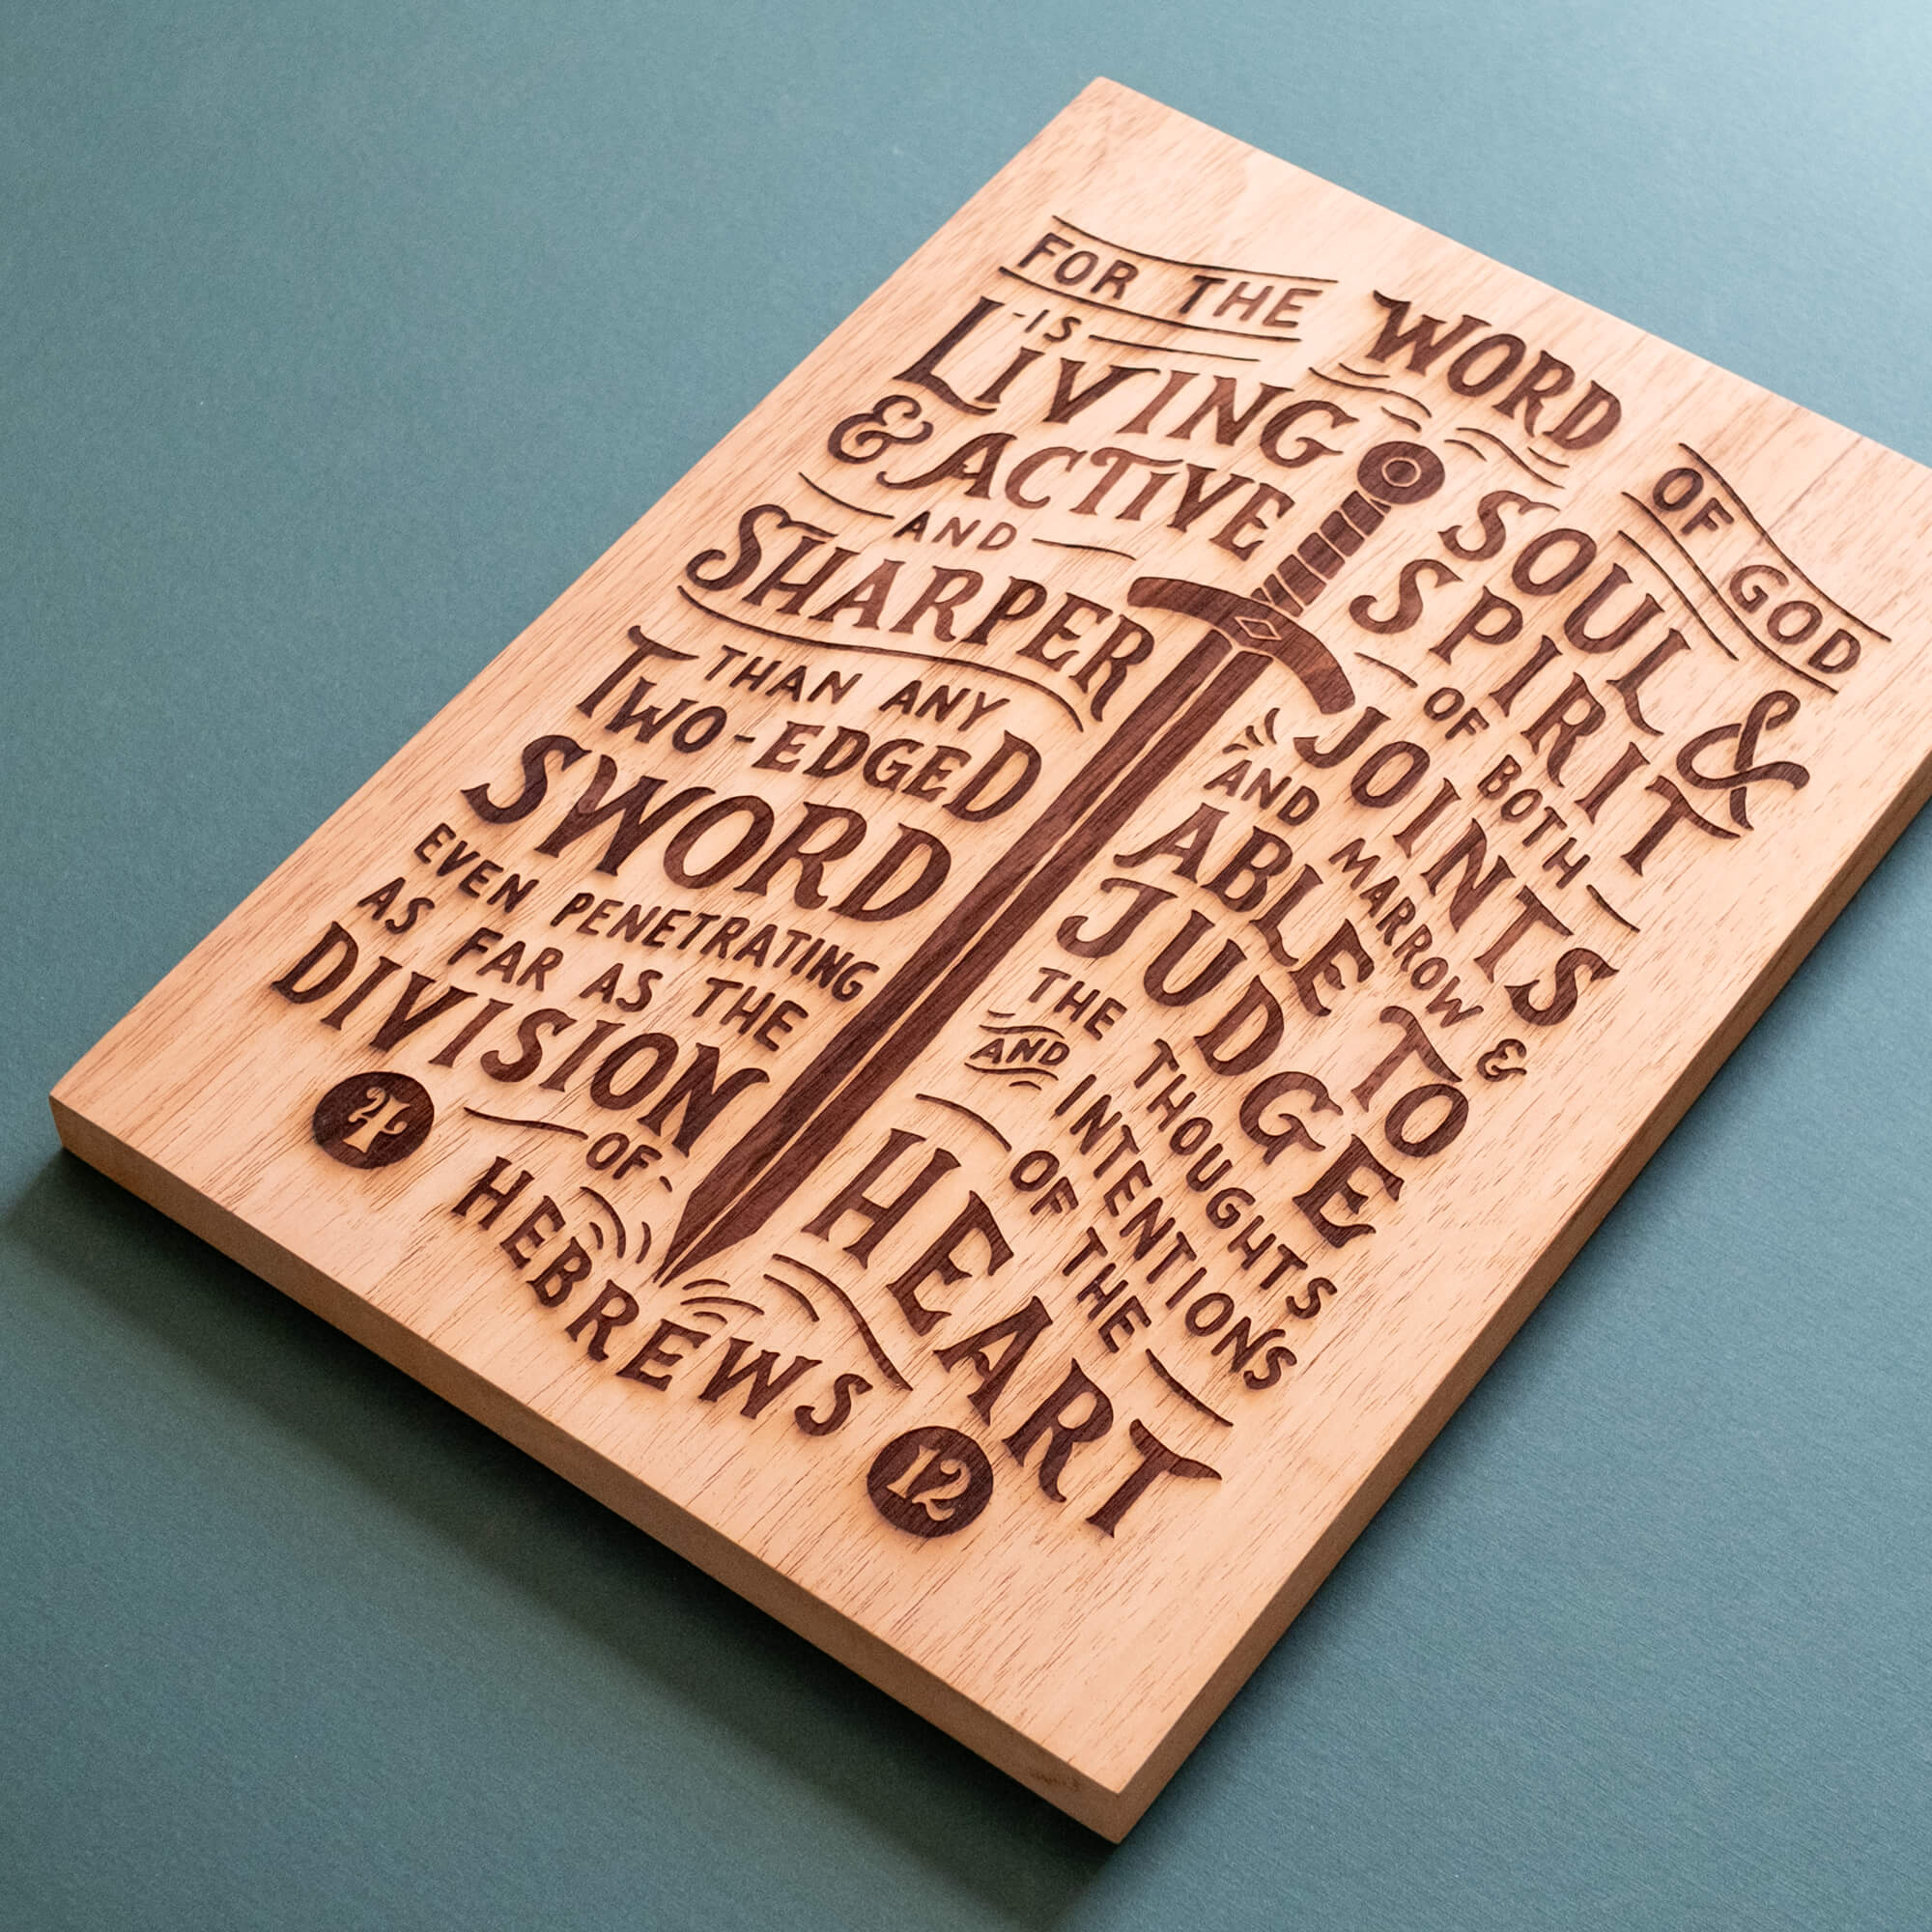 FOR THE WORD OF GOD
-IS-
LIVING
& ACTIVE
AND
SHARPER
THAN ANY
TWO-EDGED
SWORD
EVEN PENETRATING
AS FAR AS THE
DIVISION
OF
SOUL &
SPIRIT
OF BOTH
JOINTS
AND MARROW &
ABLE TO
JUDGE
THE THOUGHTS
AND INTENTIONS
OF THE
HEART
4 HEBREWS 12